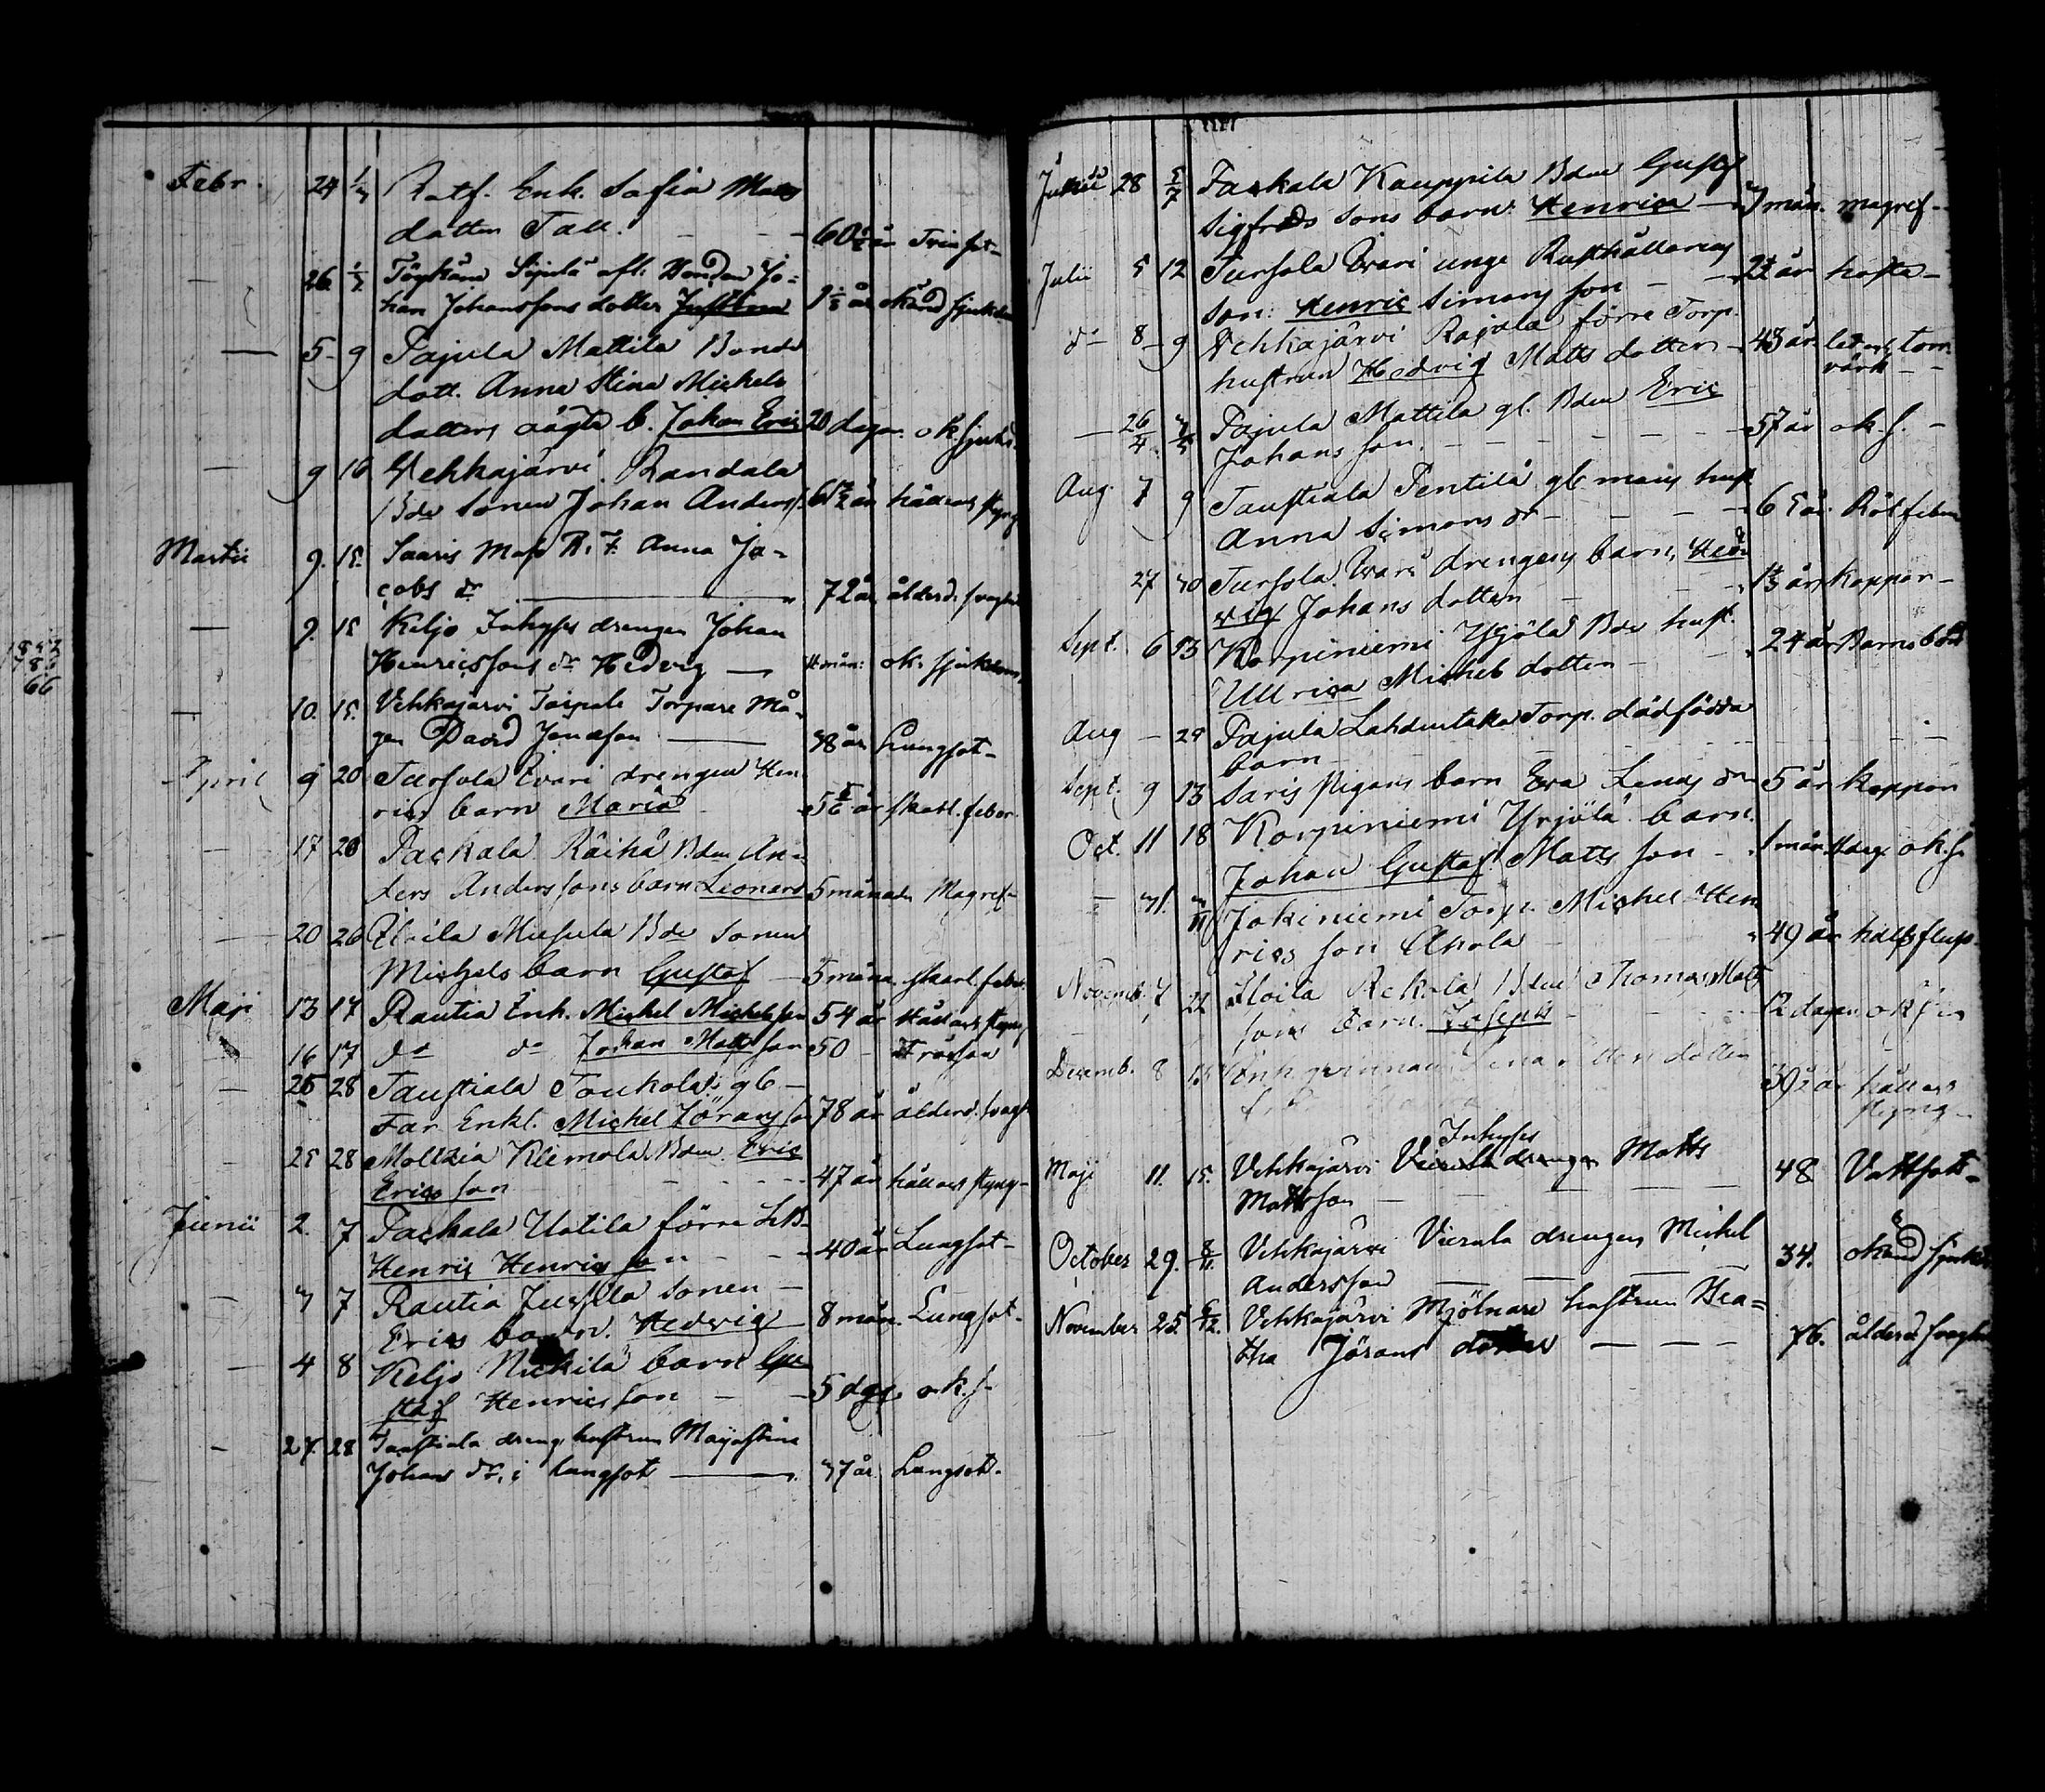 Febr. 24 1/3 Ratf. Enk. Sofia Mats
dotter Tall. 60 1/2 år Trinsot
— 26 1/2 Sipilä afl. Bonden Jo=
han Johanssons dotter Justina 1 1/2 år okänd sjukdom
— 5 9 Pajula Mattila Bonde
dott. Anna Stina Michels
dotters oägta b. Johan Eric 20 dagar ok. sjukd.
— 9 16 Vehkajärvi Randala
Bde sonen Johan Anders s. 61 1/2 år håll och styng
Martii 9. 15. Saaris Anna Ja-
cobs dr — 72 år ålderd. svaghet
— 9. 15 Keljo Inhyses drengen Johan
Henricssons dr Hedvig — mån: ok. sjukdom
— 10. 15. Vehkajärvi Taipale Torpare Må-
gen David Jonasson — 38 år Lungsot
April 9 20 Tursola Evari drengen Hen
rics barn Maria 5 år skarl. feber
— 17 20 Packala Räihä Bden An-
ders Anderssons barn Leonard 5 månader Magref
— 20 26 Iloila Miesula Bde sonen
Michels barn Gustaf — 5 måna. skarl. feber
Maji 13 17 Rautia Enk. Michel Michelsson 54 år Håll och styng
— 16 17 do do Johan Mattsson 50 — Frossan
— 25 28 Taustiala Toukola gl
Far Enkl. Michel Jöransson 78 år ålderd. svagh.
— 25 28 Moltzia Klemola Bden Eric
Ericsson — 47 år håll och styng
Junii 2. 7 Packala Uotila förre
Henric Henricsson — 40 år Lungsot
— 3 7 Rautia Jussila sonen —
Erics barn. Hedvig 8 mån. Lungsot
— 4 8 Keljo Nickilä barn Gu
staf Henricsson — 5 dgr. o.k.s.
— 27 28 Taustiala dreng hustrun Majastina
Johans dr, i lungsot — 37 år Lungsot.
28 5/7 Packala Kauppila Bden Gustaf
Sigfreds sons barn Henrica — 3 mån. magref
Julii 5 12 Tursola Evari unge Rusthållarens
son: Henric Simons son — 2 1/2 år hosta
do 8 9 Vehkajärvi Rajala förre Torp.
hustrun Hedvig Matts dotter 43 år
värk
— 26/4 3/5 Pajula Mattila gl. Bden Eric
Johans son. — 57 år ok. s.
Aug. 7 9 Taustiala Pentilä gl. mans hust
Anna Simons dr — 65 år. Rötfeber
27 30 Tursola Evari drengens barn, Hed
vig Johans dotter — 1 1/2 år koppor
Sept. 6 13 Korpiniemi Yrjölä Bde hust.
Ullrica Michels dotter — 24 år Barnsbörd
Aug — 29 Pajula Lahdentaka Torp. dödfödda
barn —
Sept. 9 13 Saris pigans barn Eva Lenas dr 5 år koppor
Oct. 11 18 Korpiniemi Yrjölä barn.
Johan Gustaf Matts son — 1 mån. ok. s.
— 31. 3/11 Jokiniemi Torp. Michel Hen
rics son Ahola 49 år halsfluss.
Novemb. 7 22 Iloila Rekola Bden Thomas Matts
sons barn. Joseph 12 dagar ok. s.
Decemb. 8 Lena dotter
39 1/2 år håll och
styng
Maji 11. 15. Vehkajärvi Inhyses Matts
Mattsson — 48 Vattsot
October 29. 8/11. Vehkajärvi Vierula drengen Michel
Andersson — 34. okänd sjukd.
November 25. 6/12. Vehkajärvi Mjölnare hustrun Bea=
tha Jörans dotter — 76. ålderd. svaghet